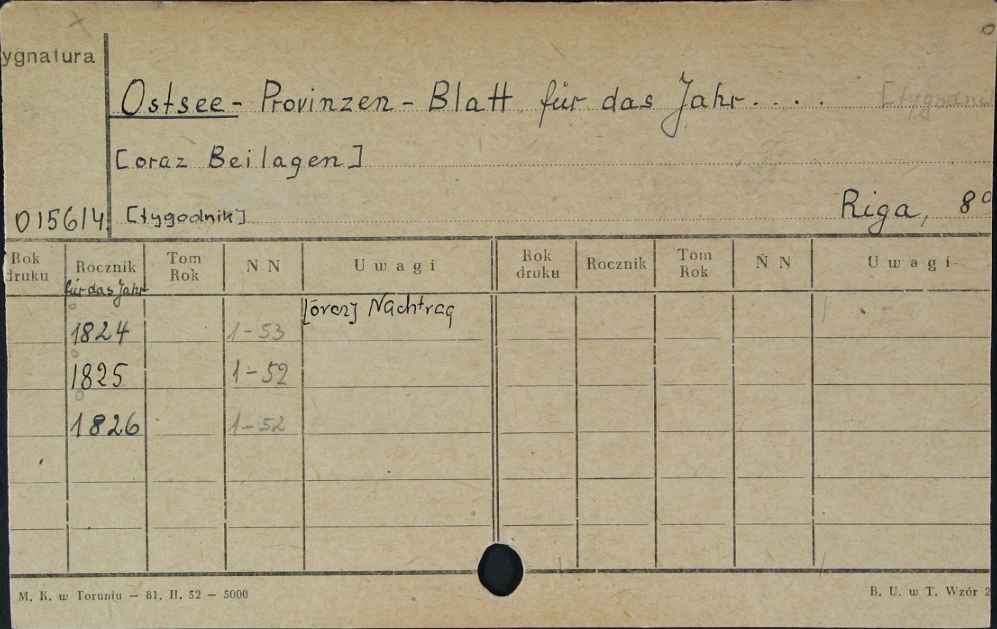 ygnatura
Ostsee - Provinzen - Blatt für das Jahr. . . . [tygodnik
[oraz Beilagen]
Riga, 8°
015614 [tygodnik]
Rok druku Rocznik Tom Rok N N Uwagi Rok druku Rocznik Tom Rok N N Uwagi
für das Jahr
[oraz] Nachtrag
1824 1-53
1825 1-52
1826 1-52
M. K. w Toruniu — 81. II. 52 — 5000 B. U. w T. Wzór 2